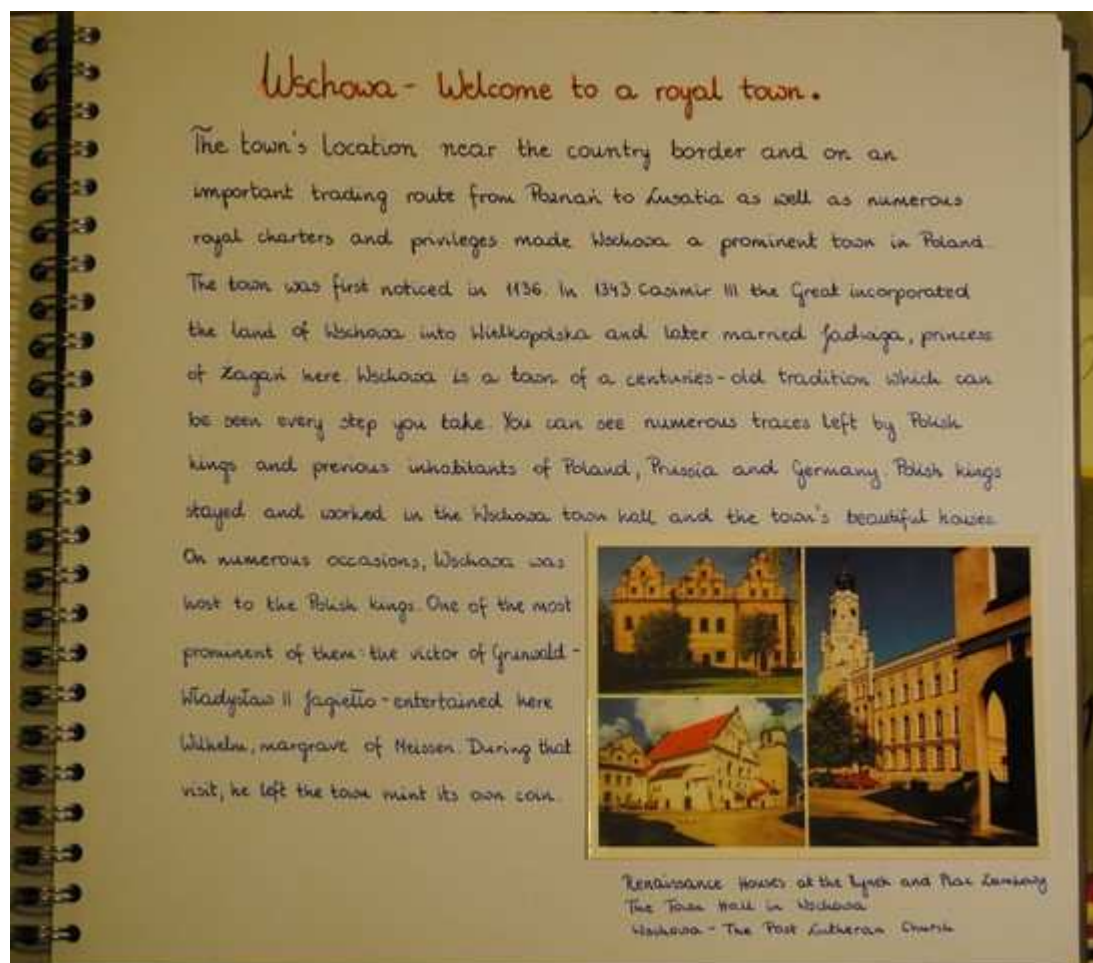 Wschowa - Welcome to a royal town.
The town's location near the country border and on an
important trading route from Poznań to Lusatia as well as numerous
royal charters and privileges made Wschowa a prominent town in Poland.
The town was first noticed in 1136. In 1343 Casimir III the Great incorporated
the land of Wschowa into Wielkopolska and later married Jadwiga, princess
of Żagań here. Wschowa is a town of a centuries-old tradition which can
be seen every step you take. You can see numerous traces left by Polish
kings and previous inhabitants of Poland, Prussia and Germany. Polish kings
stayed and worked in the Wschowa town hall and the town's beautiful houses.
On numerous occasions, Wschowa was
host to the Polish kings. One of the most
prominent of them: the victor of Grunwald -
Władysław II Jagiełło - entertained here
Wilhelm, margrave of Meissen. During that
visit, he left the town mint its own coin.
Renaissance Houses at the Rynek and Plac Zamkowy
The Town Hall in Wschowa
Wschowa - The Post Lutheran Church